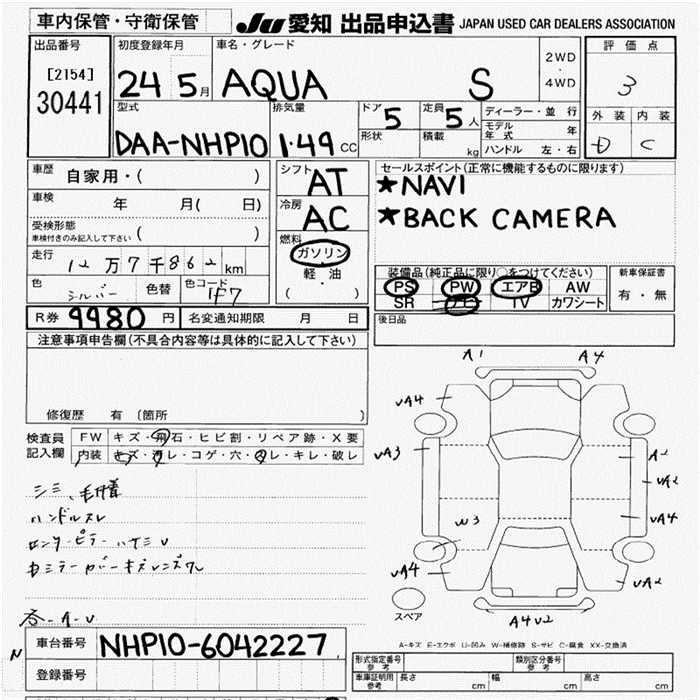 車内保管・守衛保管
JU 愛知 出品申込書 JAPAN USED CAR DEALERS ASSOCIATION
出品番号
[2154]
30441
初度登録年月
24 5月
車名・グレード
AQUA S
2WD
・
4WD
評価点
3
外装 内装
D C
型式
DAA-NHP10
排気量
1.49 CC
ドア
5
定員
5人
形状
積載
kg
ディーラー・並行
モデル年式 年
ハンドル 左・右
車歴 自家用・( )
車検 年 月( 日)
受検形態
車検付きのみ記入して下さい ( )
走行 12万7千862km
色 シルバー 色替 色コード 1F7
シフト
AT
冷房
AC
燃料
ガソリン
・
軽・油
( )
セールスポイント(正常に機能するものに限ります)
★NAVI
★BACK CAMERA
装備品(純正品に限り○をつけてください)
PS PW エアB AW
SR ナビ TV カワシート
新車保証書
有・無
後日品
R券 9980 円 名変通知期限 月 日
注意事項申告欄(不具合内容等は具体的に記入して下さい)
修復歴 有 〔箇所 〕
検査員
記入欄
FW キズ・飛石・ヒビ割・リペア跡・X要
内装 キズ・汚レ・コゲ・穴・スレ・キレ・破レ
シミ、毛付着
ハンドルスレ
A1 A4
vA4
vA3
A2
vA2
W3
vA4
vA4
vA2
A4U2
スペア
A-キズ E-エクボ U-凹み W-補修跡 S-サビ C-腐食 XX-交換済
N
車台番号 NHP10-6042227
登録番号
形式指定番号
参考
類別区分番号
参考
車庫証明用
参考
長さ cm 幅 cm 高さ cm